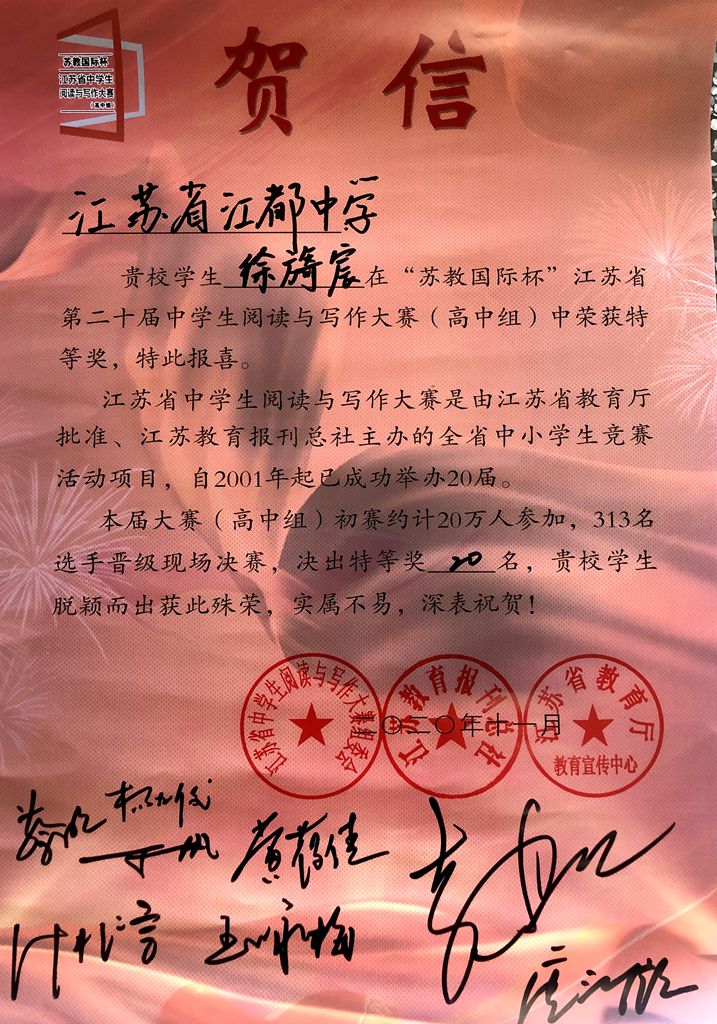 苏教国际杯
江苏省中学生
阅读与写作大赛
(高中组)
贺信
江苏省江都中学
贵校学生 徐旖宸 在“苏教国际杯”江苏省
第二十届中学生阅读与写作大赛（高中组）中荣获特
等奖，特此报喜。
江苏省中学生阅读与写作大赛是由江苏省教育厅
批准、江苏教育报刊总社主办的全省中小学生竞赛
活动项目，自2001年起已成功举办20届。
本届大赛（高中组）初赛约计20万人参加，313名
选手晋级现场决赛，决出特等奖 20 名，贵校学生
脱颖而出获此殊荣，实属不易，深表祝贺！
江苏省中学生阅读与写作大赛组委会
江苏教育报刊总社
江苏省教育厅
教育宣传中心
二〇二〇年十一月
王咏梅